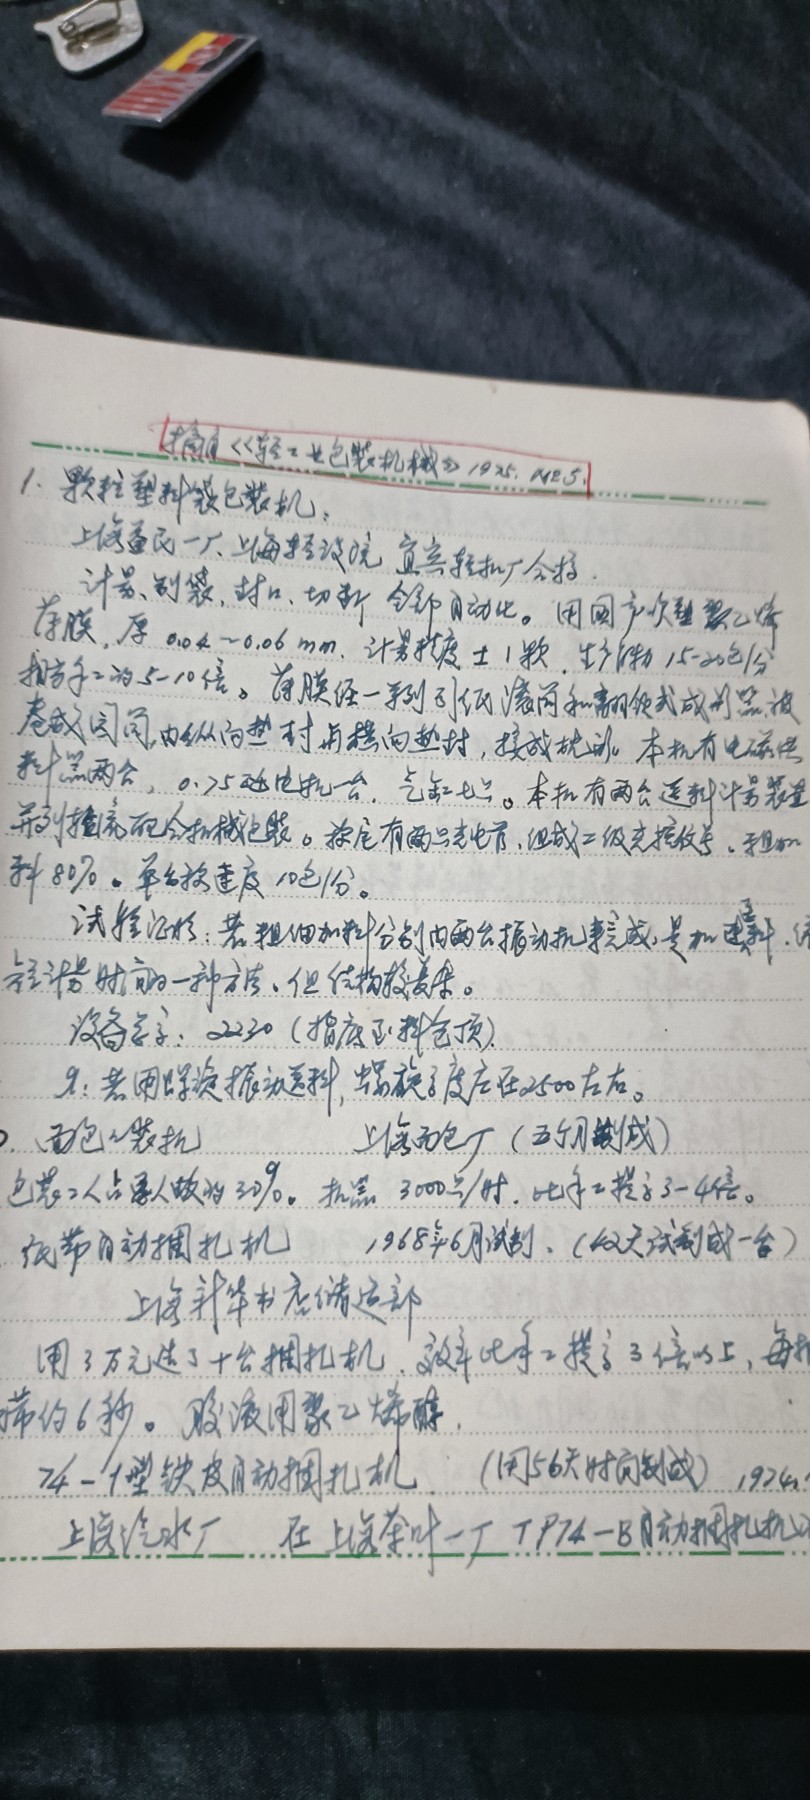 摘自《轻工业包装机械》1975. №5.
1. 颗粒塑料袋包装机:
上海益民一厂、上海轻设院 宜宾轻机厂合搞.
计量、制袋、封口、切断 全部自动化。用国产吹塑聚乙烯
薄膜, 厚 0.04~0.06 mm. 计量精度 ±1颗, 生产能力 15-20包/分
相当手工的5-10倍。薄膜经一系列引纸滚筒和翻领式成形器被
卷成圆筒, 由纵向热封与横向热封, 接成枕形。本机有电磁供
料器两台, 0.75 电机一台, 气缸七只。本机有两台送料计量装置
并列 配合机械包装。 有两只光电管, 组成二级光控信号, 粗加
料80%。单台 速度 10包/分。
试验证明: 若粗细加料分别由两台振动机来完成, 是加速料,
短计量时间的一种方法, 但结构较复杂。
设备总高: 2230 (指底至料仓顶).
若用螺旋振动送料, 高度应在2500左右。
面包包装机 上海面包厂 (五个月制成)
包装工人占总人数的30%。机器 3000只/时. 比手工提高3-4倍。
纸带自动捆扎机 1968年6月试制. (42天试制成一台)
上海新华书店储运部
用3万元造了十台捆扎机. 效率比手工提高3倍以上, 每扎
带约6秒。胶液用聚乙烯醇.
74-1型铁皮自动捆扎机. (用56天时间制成) 1974.
上海汽水厂 在上海茶叶一厂 TP74-B自动捆扎机